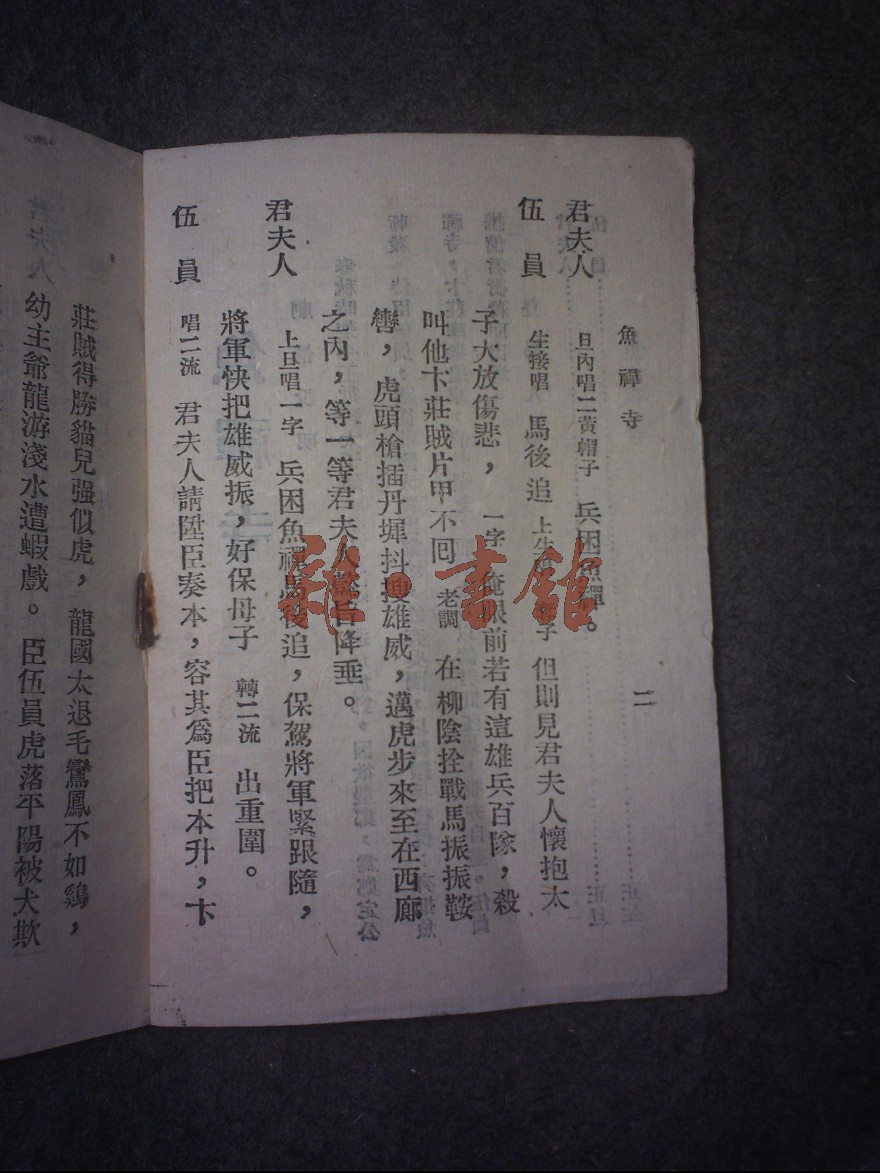 魚禪寺
二
君夫人 旦內唱二黃帽子 兵困魚禪。
伍員 生接唱 馬後追 上生 子 但則見君夫人懷抱太
子大放傷悲， 一字 俺眼前若有這雄兵百隊，殺
叫他卞莊賊片甲不回 老調 在柳陰拴戰馬振振鞍
轡，虎頭槍插丹墀抖搜雄威，邁虎步來至在西廊
之內，等一等君夫人懿旨降垂。
君夫人 上旦唱一字 兵困魚禪馬後追，保駕將軍緊跟隨，
將軍快把雄威振，好保母子 轉二流 出重圍。
伍員 唱二流 君夫人請陞臣奏本，容其爲臣把本升，卞
莊賊得勝貓兒强似虎，龍國太退毛鸞鳳不如鷄，
幼主爺龍游淺水遭蝦戲。臣伍員虎落平陽被犬欺
雜·書館